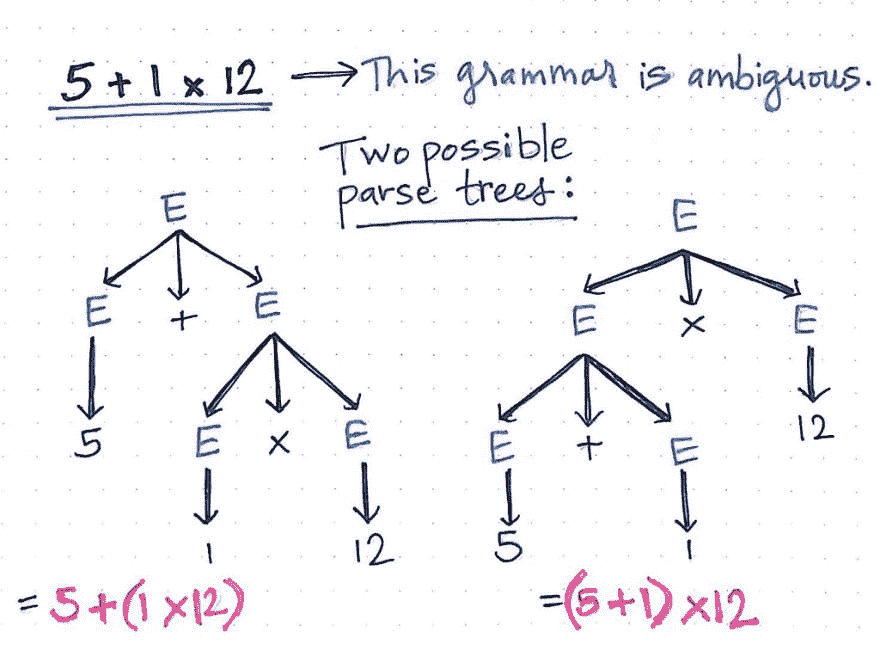 5 + 1 x 12 → This grammar is ambiguous.
Two possible
parse trees:
E
E + E
5 E x E
1 12
= 5+(1 x12)
E
E x E
E + E 12
5 1
=(5+1) x12